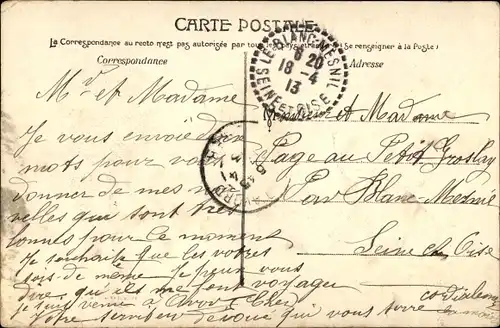 CARTE POSTALE
La Correspondance au recto n'est pas autorisée par tous les pays étrangers (Se renseigner à la Poste)
Correspondance
Adresse
LE BLANC-MESNIL
6 20
18 - 4
13
SEINE ET OISE
Mr et Madame
Je vous envoie deux
mots pour vous
donner de mes nou
velles qui sont très
bonnes pour ce moment
Je souhaite que les votres
sois de même Je peux vous
dire qui ils me font voyager
Je suis venu à Cher
Votre serviteur dévoué qui vous
Monsieur et Madame
Page au Petit Groslay
Par Blanc-Mesnil
Seine et Oise